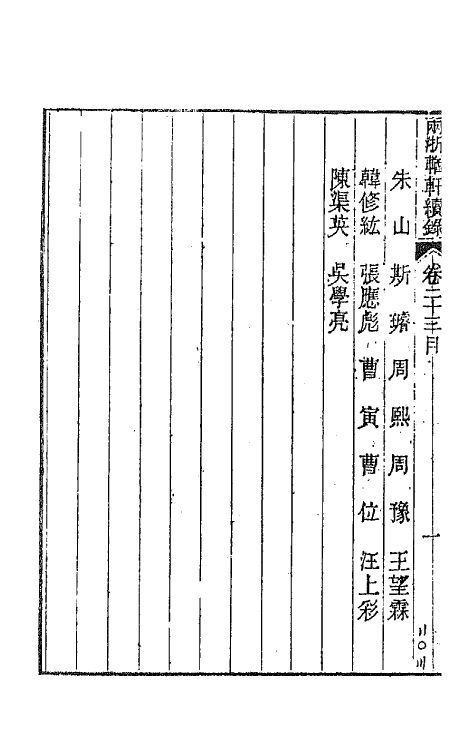 兩浙輶軒續錄 卷二十三目 一
朱山 斯璿 周熙 周豫 王望霖
韓修紘 張應彪 曹寅 曹位 汪上彩
陳渠英 吳學亮